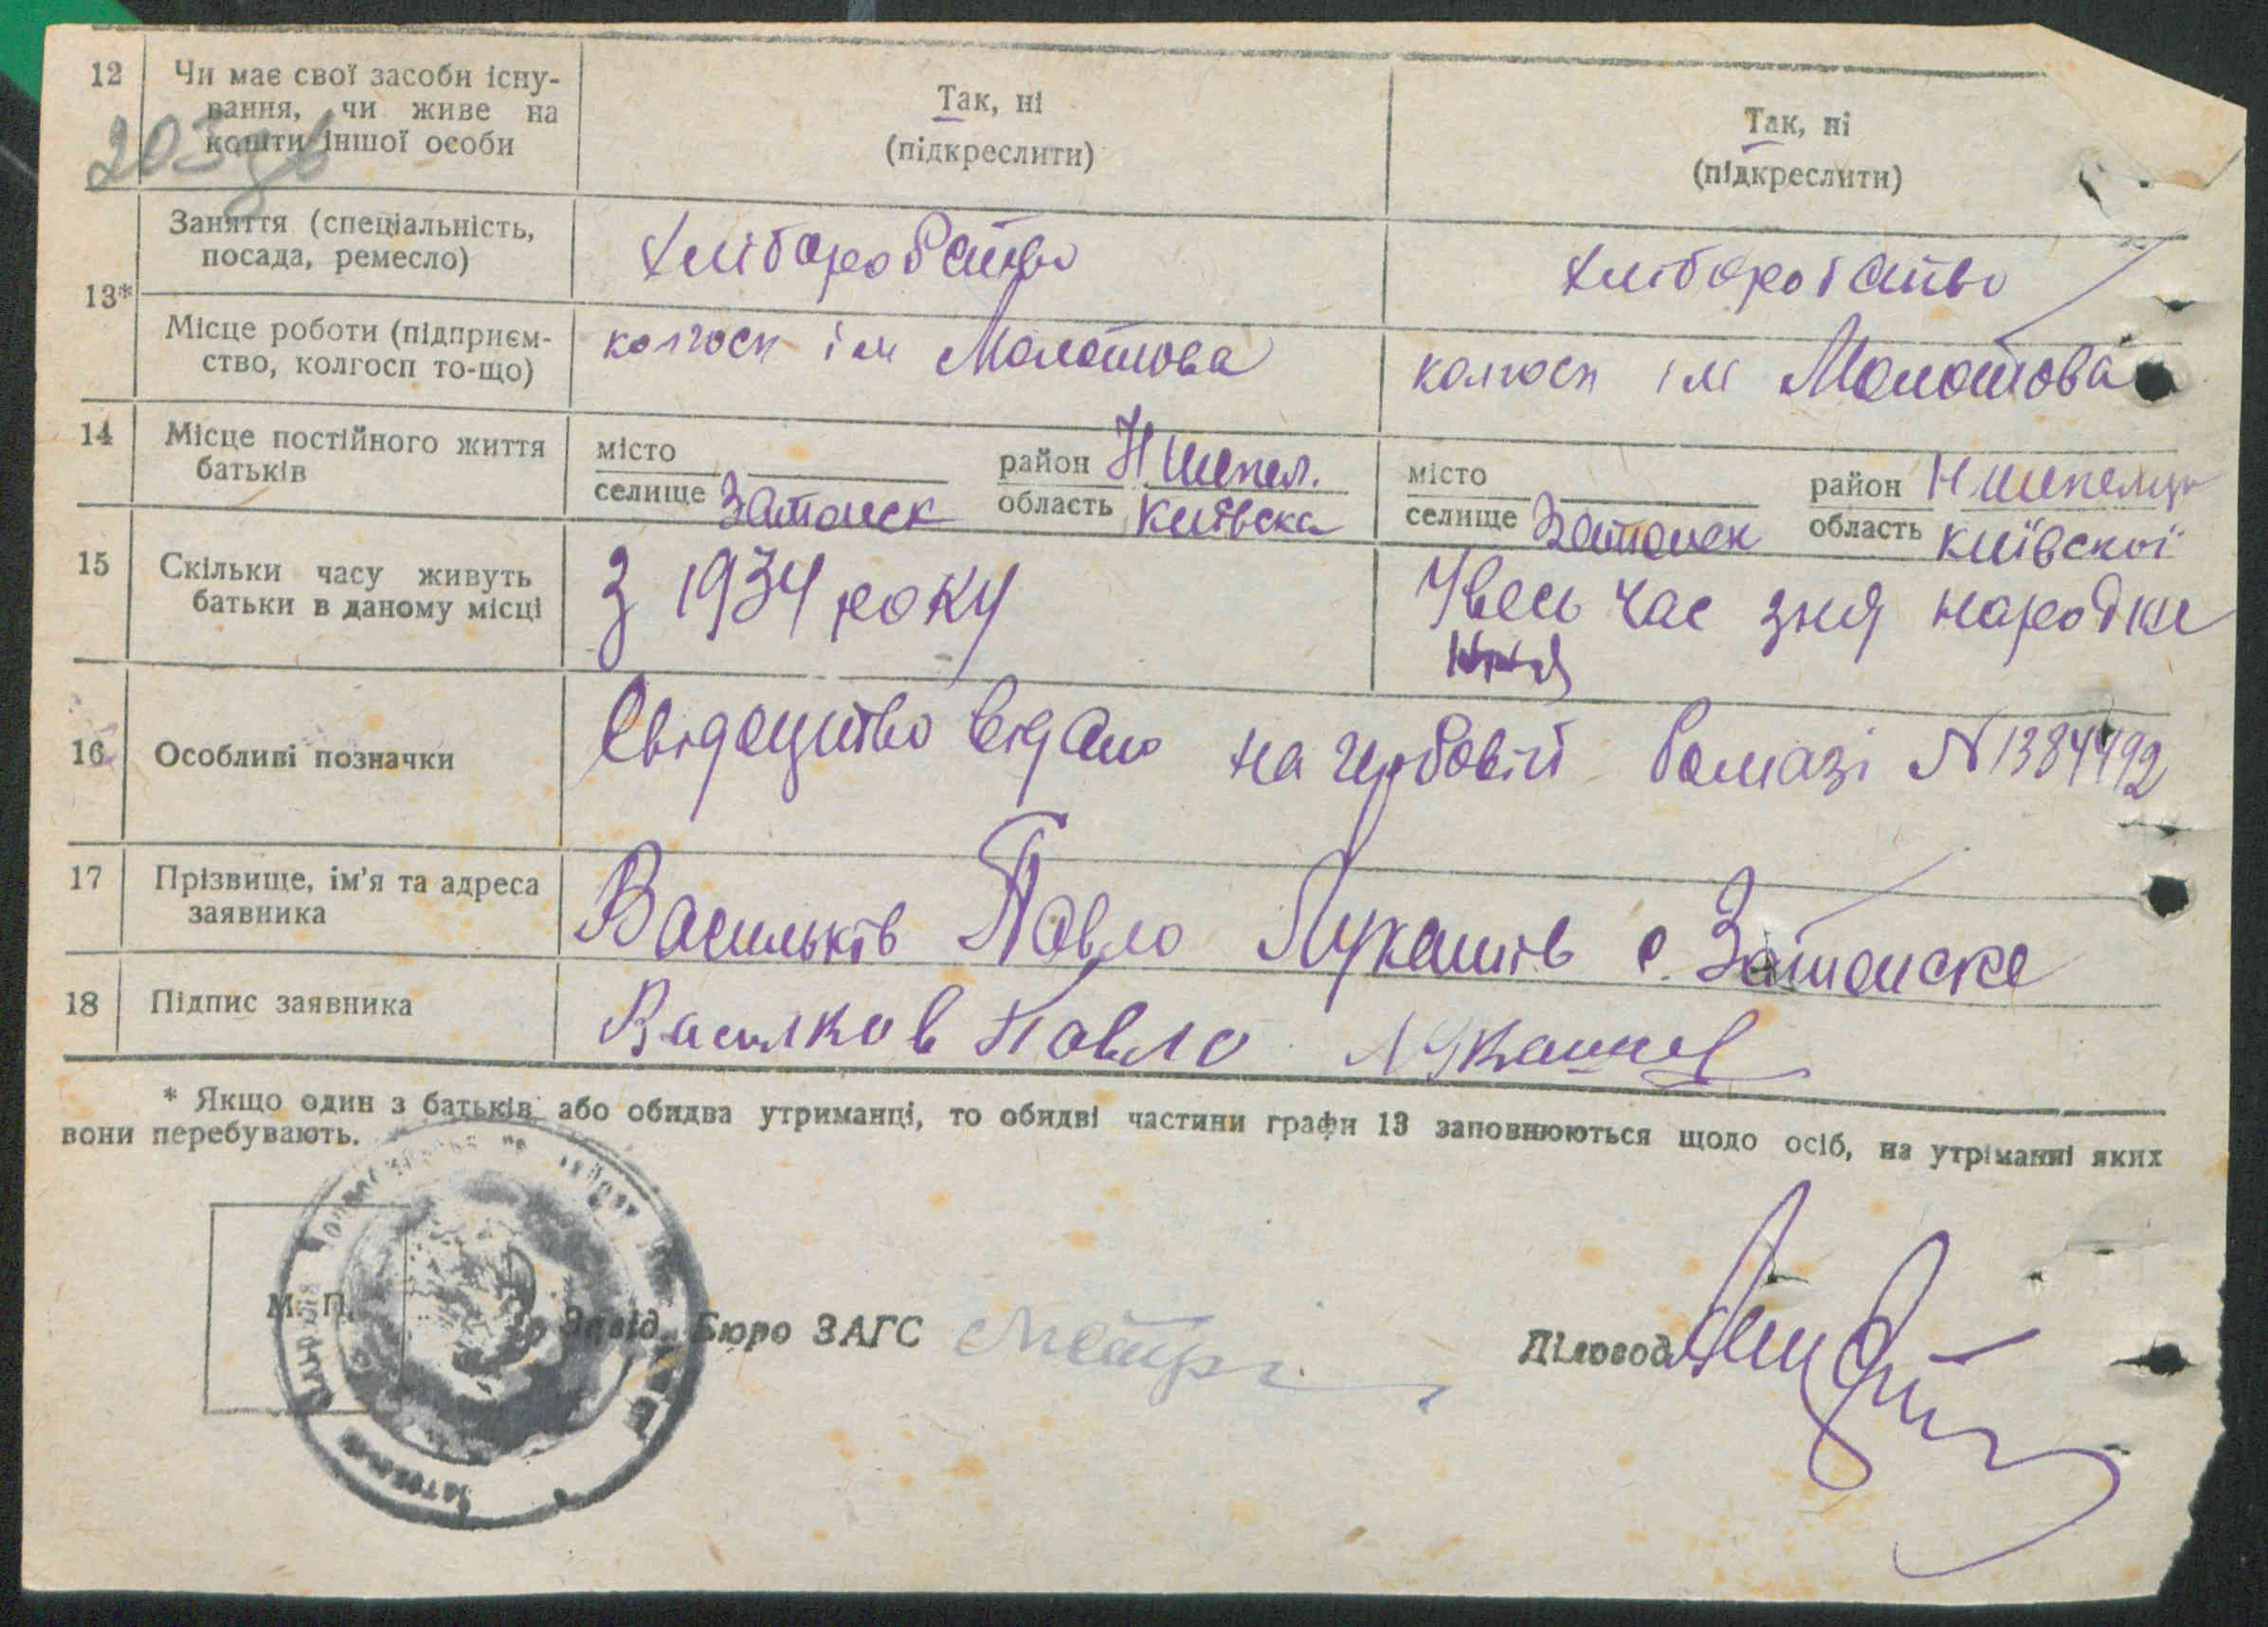 12 Чи має свої засоби існу-
вання, чи живе на
кошти іншої особи
Так, ні
(підкреслити)
Так, ні
(підкреслити)
203
13*
Заняття (спеціальність,
посада, ремесло)
Хліборобство
Хліборобство
Місце роботи (підприєм-
ство, колгосп то-що)
колгосп ім Молотова
колгосп ім Молотова
14 Місце постійного життя
батьків
місто
селище Затонськ
район Н Шепел.
область Київська
місто
селище Затонськ
район Н Шепелич
область Київської
15 Скільки часу живуть
батьки в даному місці
З 1934 року
Увесь час зня народже
ння
16 Особливі позначки
Свідоцтво видано на гербовій бомазі N 1384492
17 Прізвище, ім'я та адреса
заявника
Васильків Павло Лукашів с. Затонске
18 Підпис заявника
Василков Павло Лукашев
* Якщо один з батьків або обидва утриманці, то обидві частини графи 13 заповнюються щодо осіб, на утриманні яких
вони перебувають.
М. П.
Завід. Бюро ЗАГС
Діловод